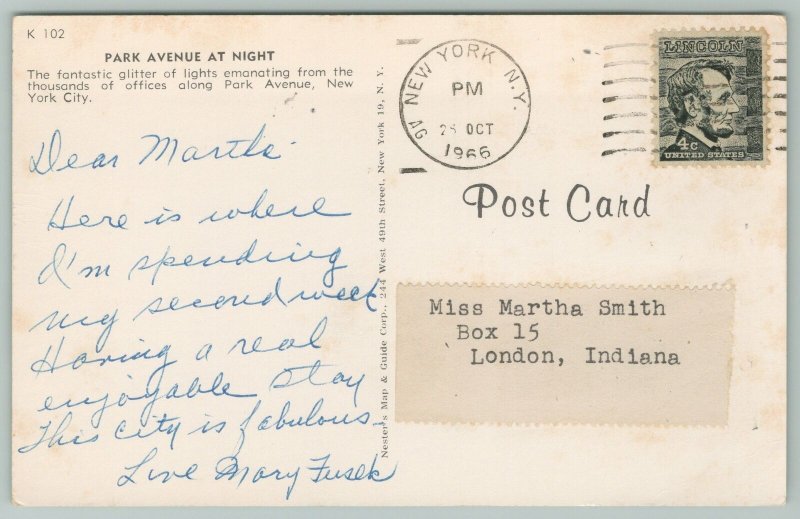 K 102
PARK AVENUE AT NIGHT
The fantastic glitter of lights emanating from the
thousands of offices along Park Avenue, New
York City.
Dear Martha
Here is where
I'm spending
my second week
Having a real
enjoyable stay
This city is fabulous.
Love Mary Fusek
Nester's Map & Guide Corp., 244 West 49th Street, New York 19, N. Y.
NEW YORK N.Y.
PM
OCT
1966
LINCOLN
4c
UNITED STATES
Post Card
Miss Martha Smith
Box 15
London, Indiana